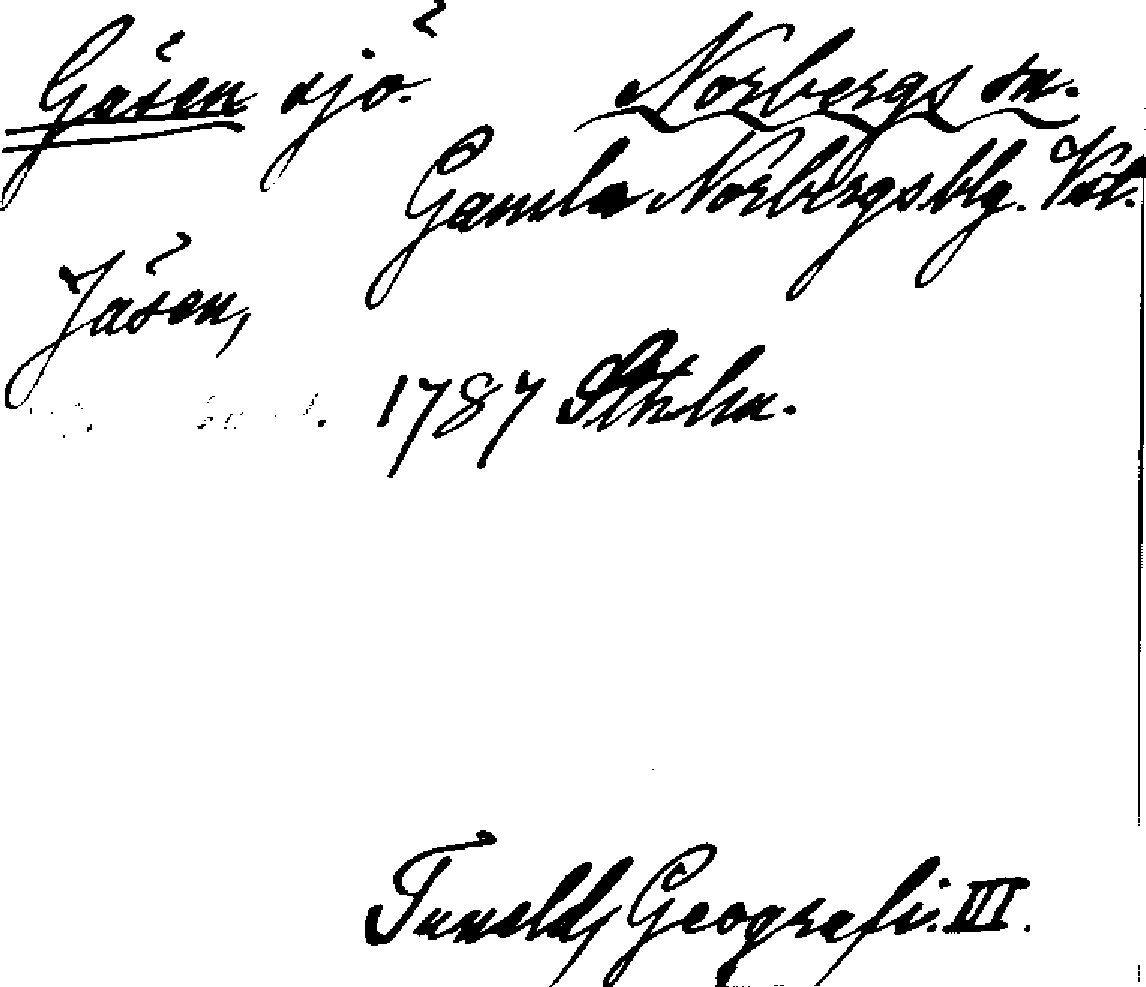 Gäsen sjö. Norbergs sn.
Gamla Norbergs blg. Vst.
Jäsen,
1787 Sthlm.
Tunelds Geografi. III.